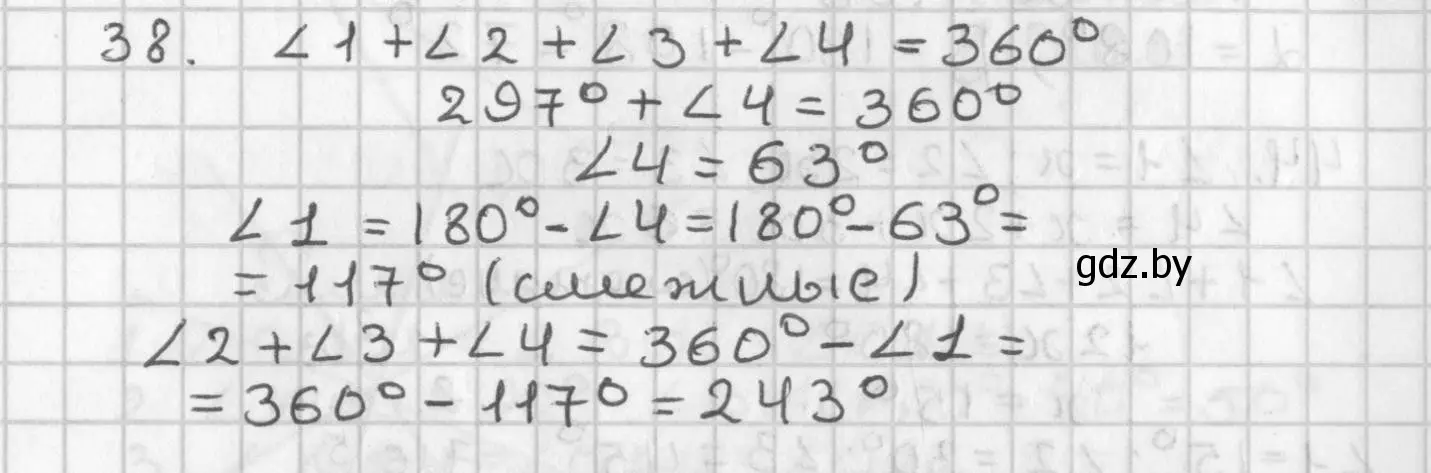 38. ∠1 + ∠2 + ∠3 + ∠4 = 360°
297° + ∠4 = 360°
∠4 = 63°
∠1 = 180° - ∠4 = 180° - 63° =
= 117° (смежные)
gdz.by
∠2 + ∠3 + ∠4 = 360° - ∠1 =
= 360° - 117° = 243°